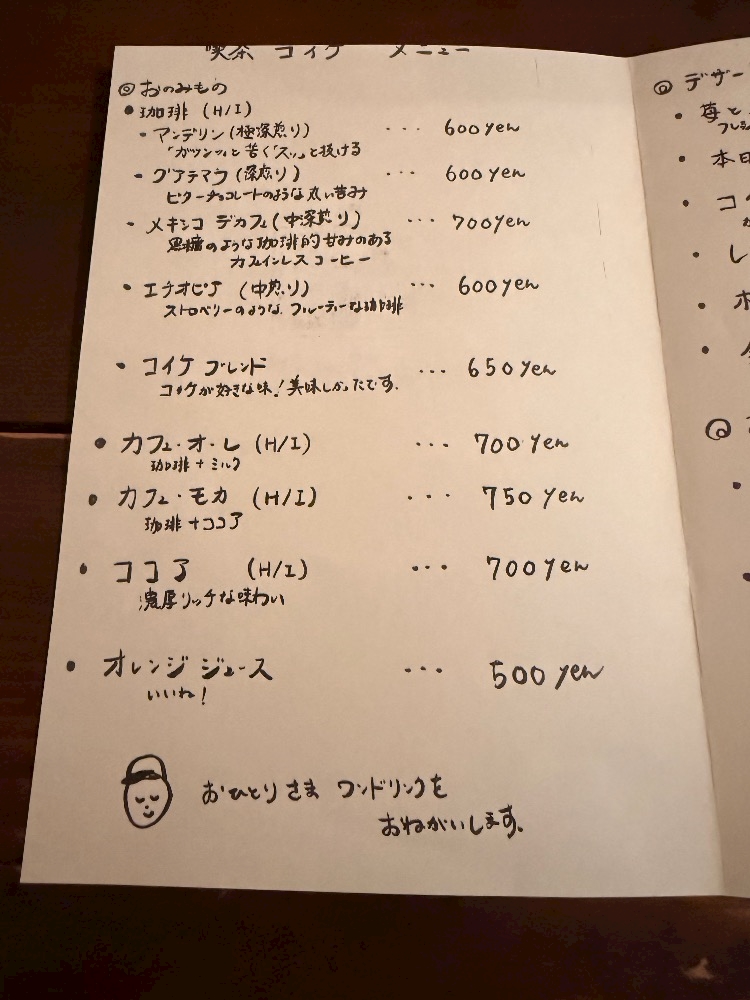 喫茶 コイケ メニュー
◎ おのみもの
● 珈琲 (H/I)
・マンデリン (極深煎り) ... 600yen
「ガツンッ」と苦く「スッ」と抜ける
・グアテマラ (深煎り) ... 600yen
ビターチョコレートのような 丸い苦み
・メキシコ デカフェ (中深煎り) ... 700yen
黒糖のような珈琲的甘みのある
カフェインレス コーヒー
・エチオピア (中煎り) ... 600yen
ストロベリーのような、フルーティーな珈琲
・コイケ ブレンド ... 650yen
コイケが好きな味!美味しかったです。
● カフェ・オ・レ (H/I) ... 700yen
珈琲+ミルク
● カフェ・モカ (H/I) ... 750yen
珈琲+ココア
● ココア (H/I) ... 700yen
濃厚リッチな味わい
● オレンジ ジュース ... 500yen
いいね!
おひとりさま ワンドリンクを
おねがいします。
◎ デザー
・苺と
フレ
・本日
・コ
・レ